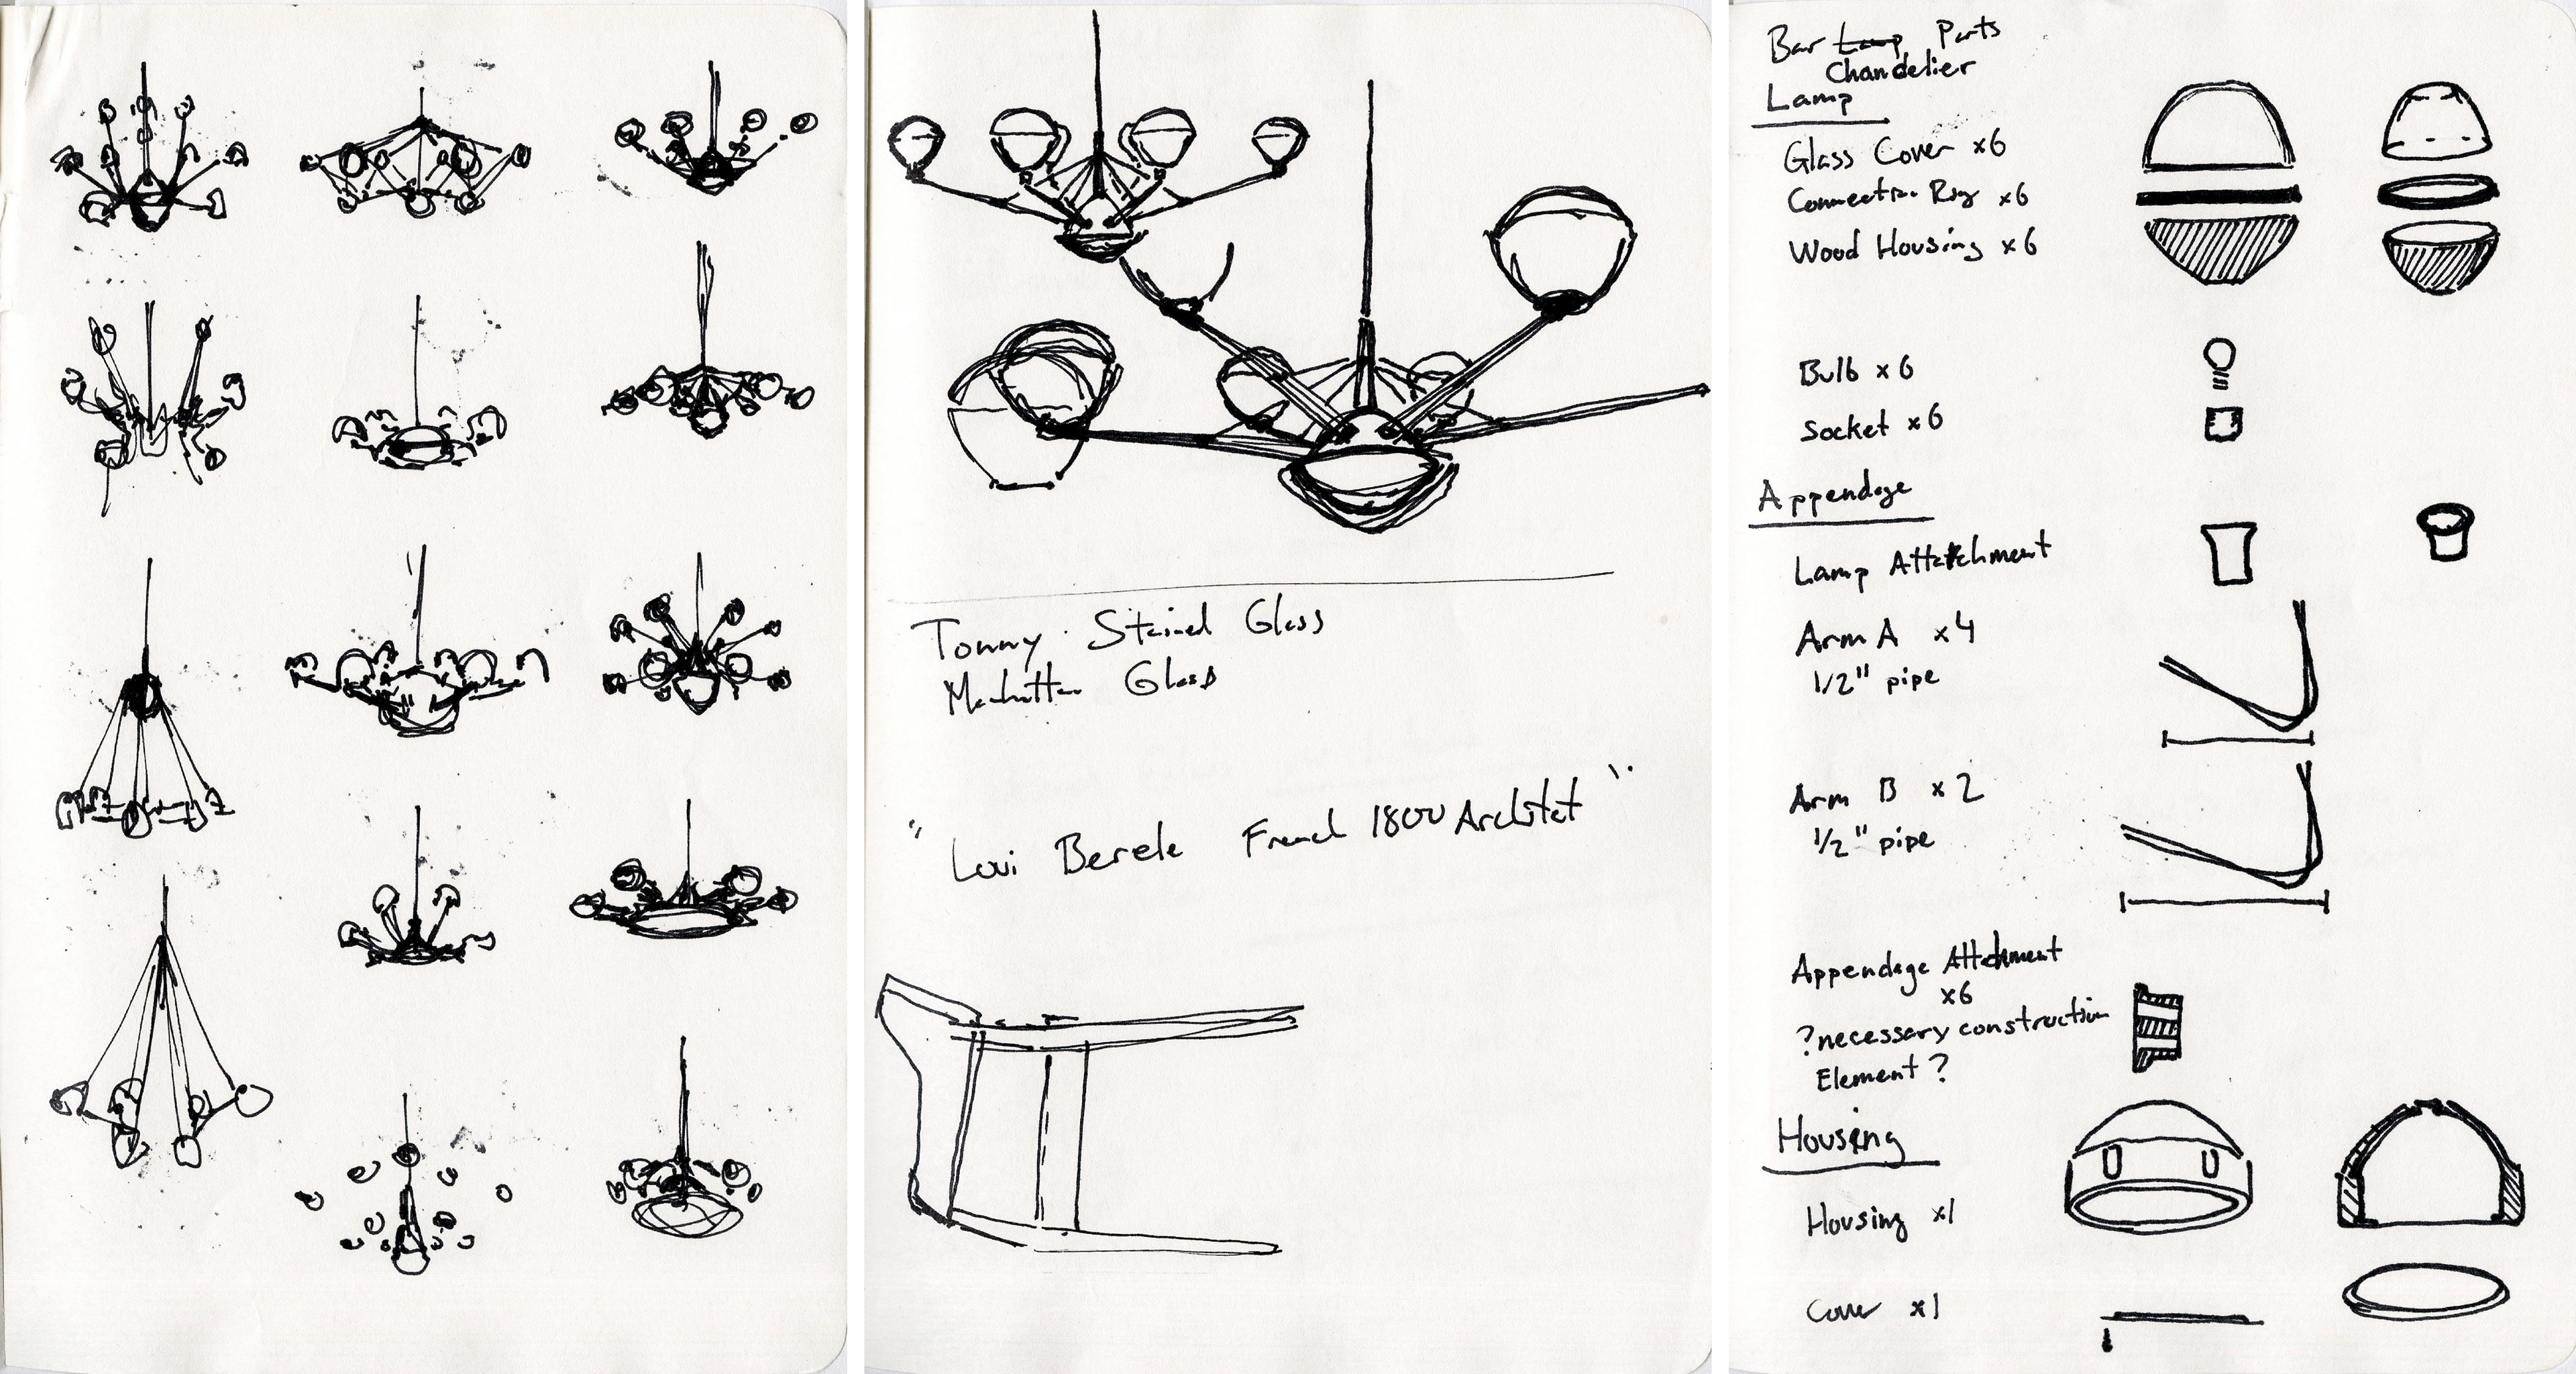 Tonny Stained Glass
Manhattan Glass
" Loui Berele French 1800 Architet "
Bar Lamp Parts
Chandelier
Lamp
Glass Cover x6
Connection Ring x6
Wood Housing x6
Bulb x6
Socket x6
Appendage
Lamp Attatchment
Arm A x4
1/2" pipe
Arm B x2
1/2" pipe
Appendage Attachment
x6
?necessary construction
Element?
Housing
Housing x1
Cover x1